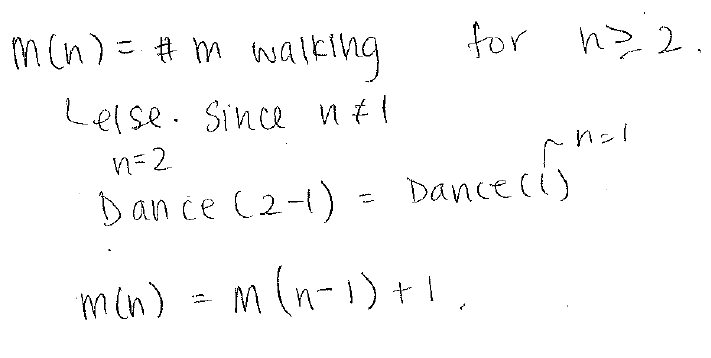 m(n) = # m walking for n ≥ 2.
↳ else. Since n ≠ 1
n=2
n=1
Dance (2-1) = Dance(1)
m(n) = m(n-1) + 1.